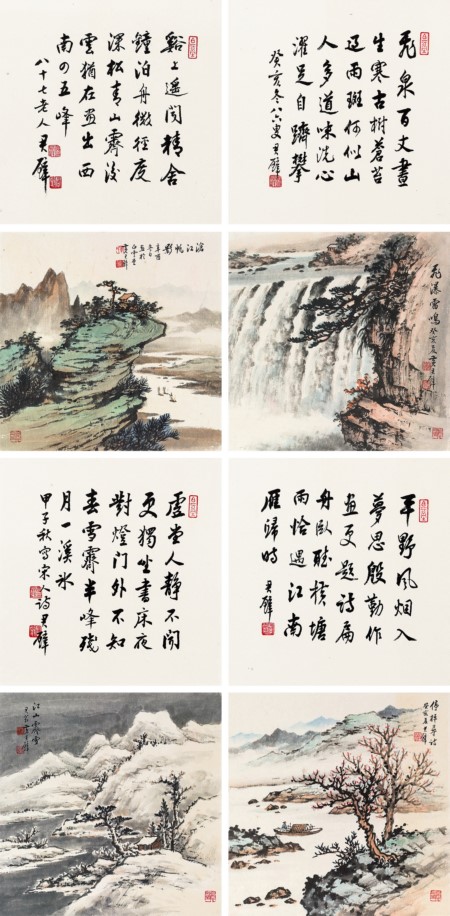 飛泉百丈晝
生寒古樹蒼苔
過雨斑何似山
人多道味洗心
濯足自躋攀
癸亥冬八六叟君璧
谿上遥聞精舍
鐘泊舟微徑度
深松青山霽後
雲猶在畫出西
南四五峰
八十七老人君璧
飛瀑雷鳴 癸亥夏黃君璧
滄江帆影
辛酉
冬日
畫於
白雲堂
黃君璧
平野風烟入
夢思殷勤作
畫更題詩扁
舟臥聽橫塘
雨恰遇江南
雁歸時 君璧
虛堂人靜不聞
更獨坐書床夜
對燈門外不知
春雪霽半峰殘
月一溪冰
甲子秋寫宋人詩君璧
停棹尋詩
江山霽雪